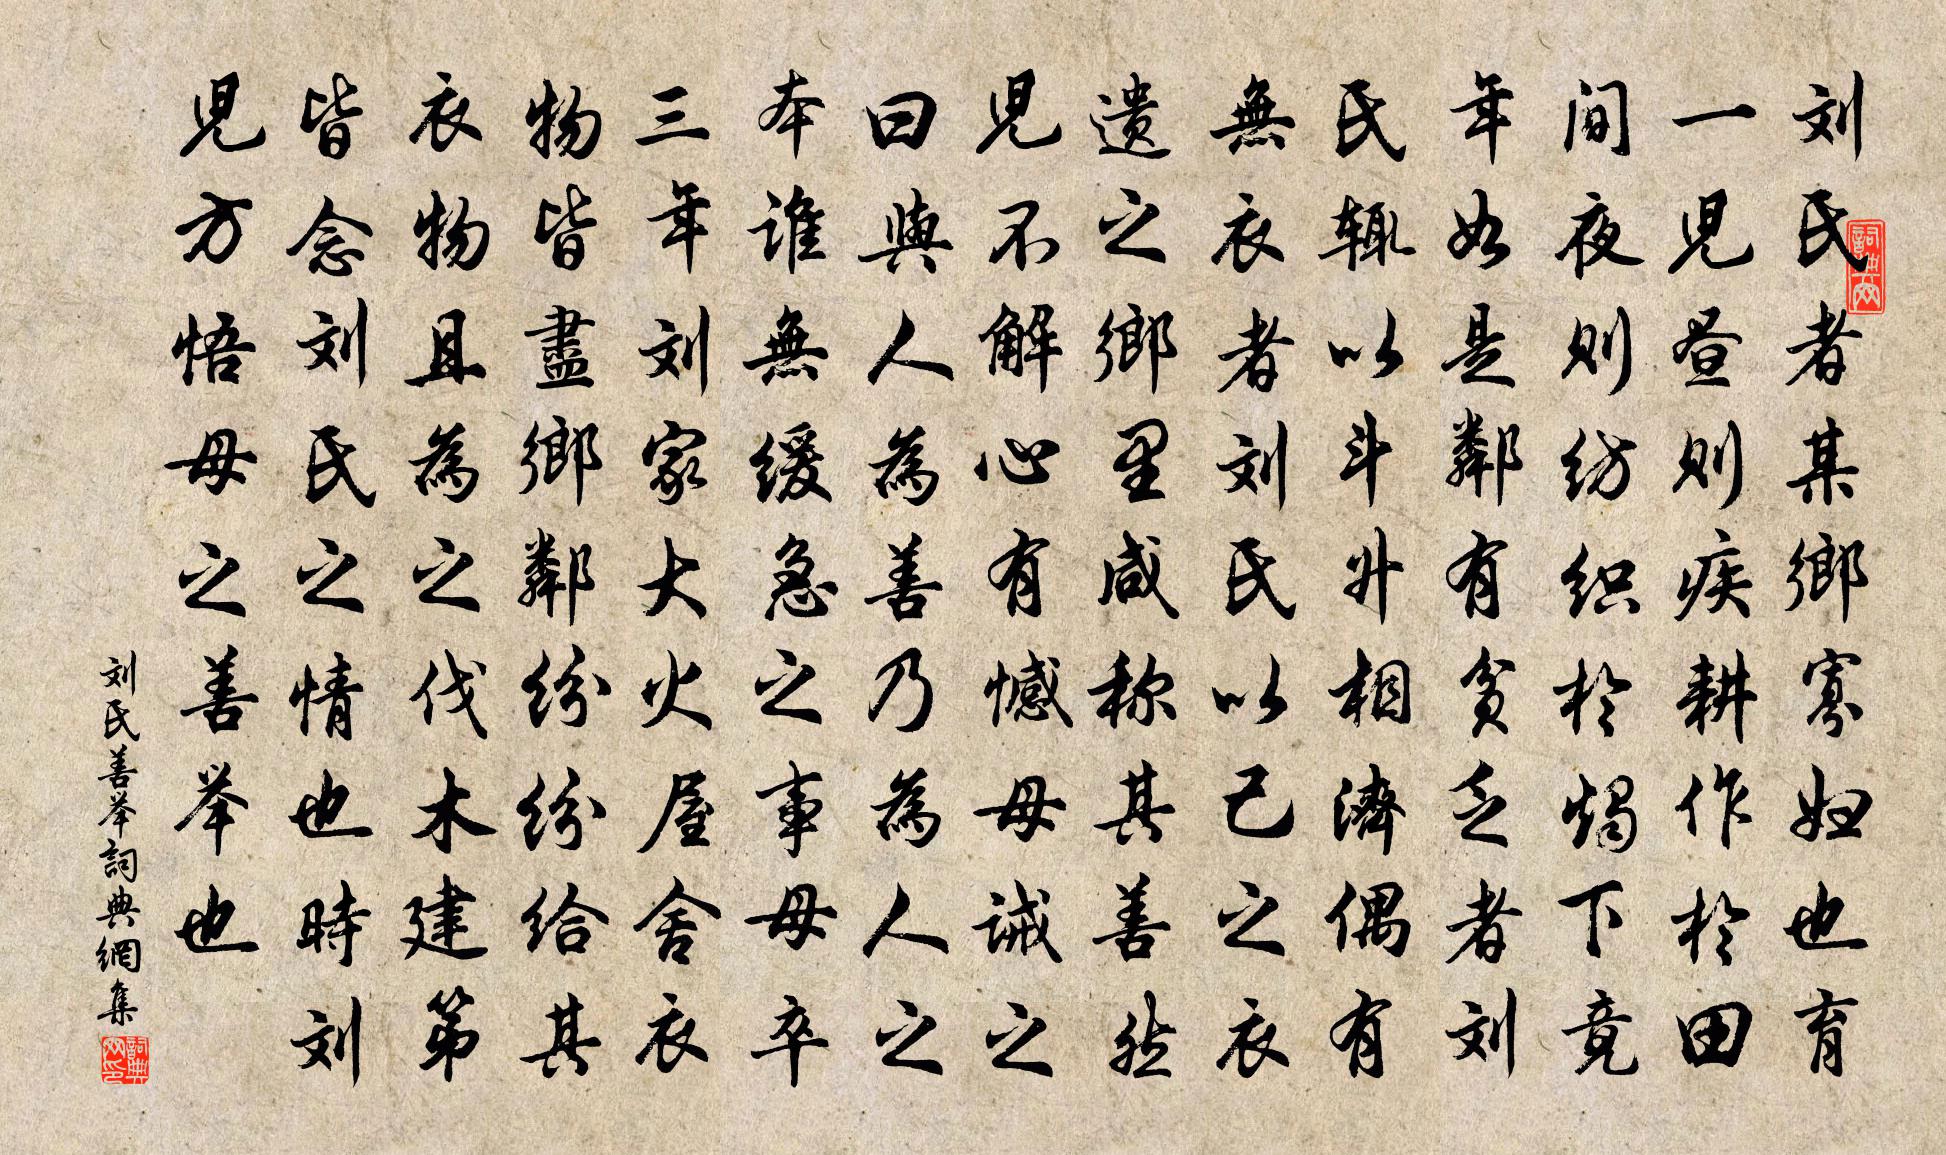 刘氏者某鄉寡妇也育
一児昼则疾耕作於田
间夜则纺织於燭下竟
年如是鄰有贫乏者刘
氏辄以斗升相濟偶有
無衣者刘氏以己之衣
遗之鄉里咸称其善然
児不解心有憾母诫之
曰與人為善乃為人之
本谁無缓急之事母卒
三年刘家大火屋舍衣
物皆盡鄉鄰纷纷给其
衣物且為之伐木建第
皆念刘氏之情也時刘
児方悟母之善举也
刘氏善举詞典網集
詞典网
詞典网印